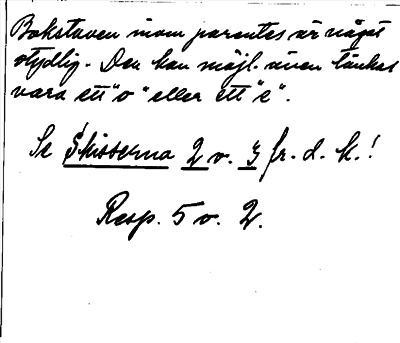 Bokstaven inom parentes är något
otydlig. Den kan möjl. även tänkas
vara ett "o" eller ett "e".
Se Skisserna 2 o. 3 fr. d. k.!
Resp. 5 o. 2.